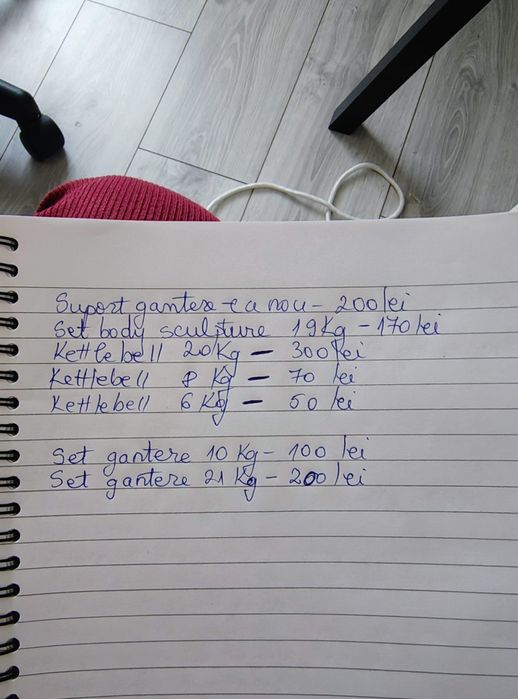 Suport gantere - ca nou - 200 lei
Set body sculpture 19 Kg - 170 lei
Kettlebell 20 Kg - 300 lei
Kettlebell 8 Kg - 70 lei
Kettlebell 6 Kg - 50 lei
Set gantere 10 Kg - 100 lei
Set gantere 21 Kg - 200 lei